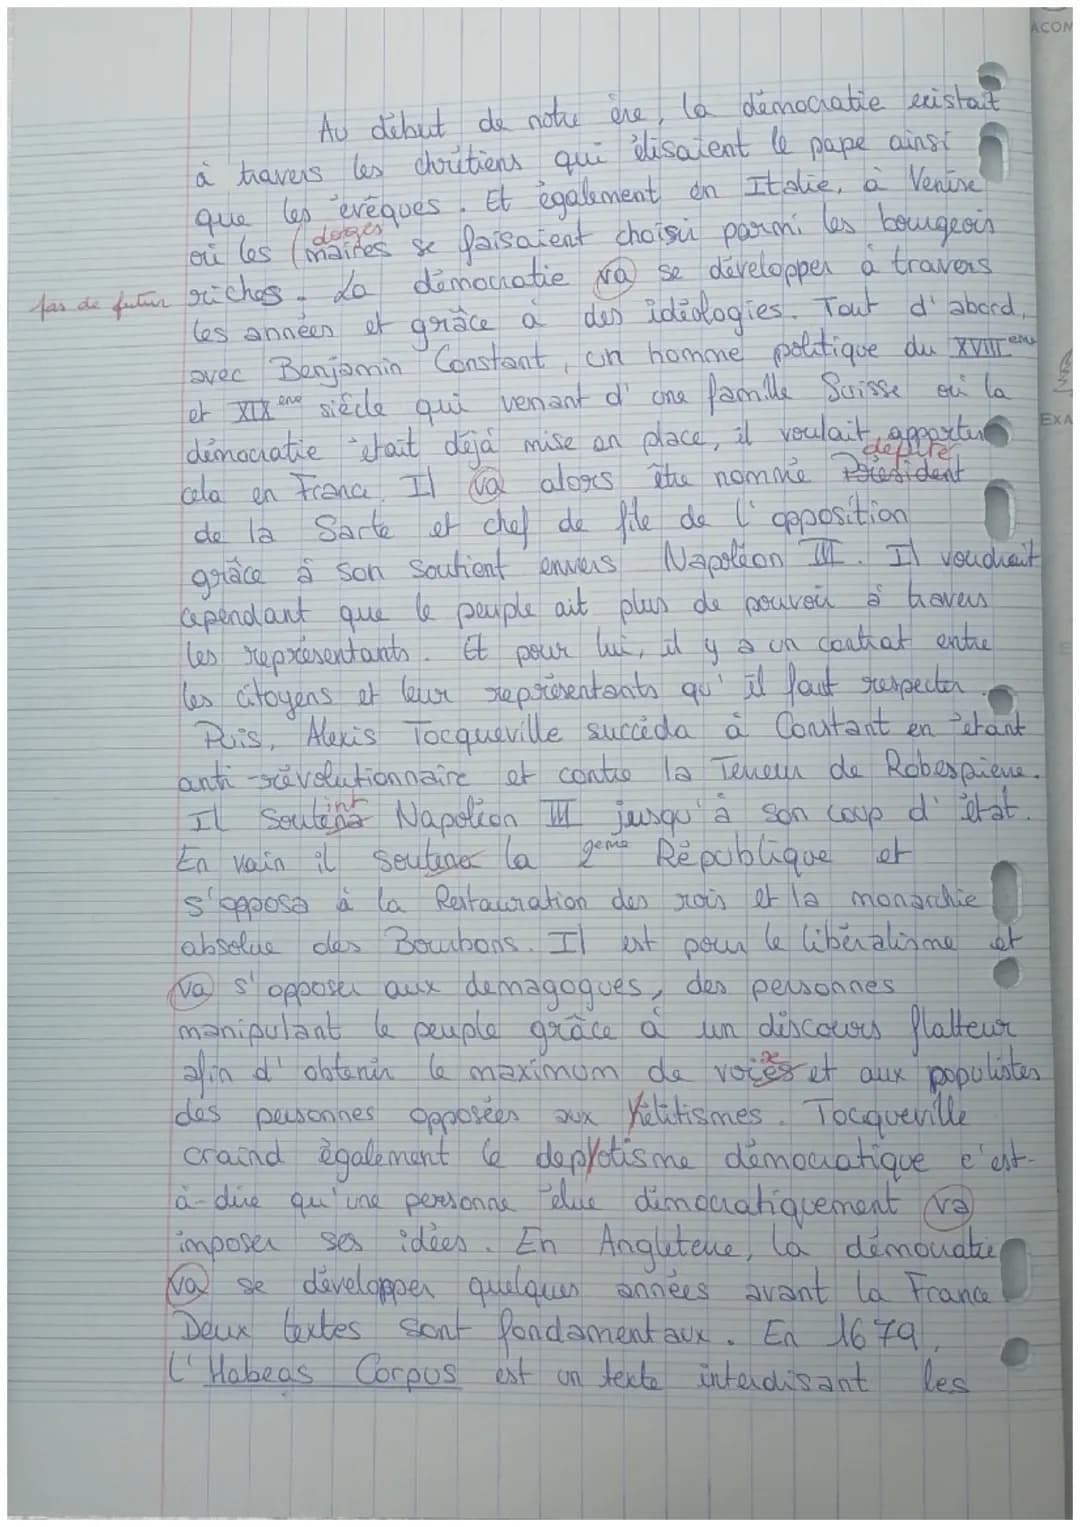 ACON
Au début de notre ère, la démocratie existait
à travers les chrétiens qui élisaient le pape ainsi
que les évêques. Et également en Italie, à Venise
doges
où les (maires se faisaient choisir parmi les bourgeois
pas de futur riches. La démocratie va se développer à travers
les années et grâce à des idéologies. Tout d'abord,
avec Benjamin Constant, un homme politique du XVIIIeme
et XIXeme siècle qui venant d'une famille Suisse où la
démocratie était déjà mise en place, il voulait apporter
EXA
député
cela en France. Il va alors être nommé Président
de la Sarte et chef de file de l'opposition
grâce à son soutient envers Napoléon III. Il voudrait
cependant que le peuple ait plus de pouvoir à travers
les représentants. Et pour lui, il y a un contrat entre
les citoyens et leur représentants qu'il faut respecter.
Puis, Alexis Tocqueville succéda à Constant en étant
anti-révolutionnaire et contre la Terreur de Robespierre.
int
Il Soutena Napoléon III jusqu'à son coup d'état.
En vain il soutena la 2eme République et
s'opposa à la Restauration des rois et la monarchie
absolue des Bourbons. Il est pour le libéralisme et
va s'opposer aux demagogues, des personnes
manipulant le peuple grâce à un discours flatteur
afin d'obtenir le maximum de voies et aux populistes
x
des personnes opposées aux élitismes. Tocqueville
craind également le despotisme démocratique c'est-
à-dire qu'une personne élue démocratiquement va
imposer ses idées. En Angleterre, la démocratie
va se développer quelques années avant la France.
Deux textes sont fondamentaux. En 1679,
l'Habeas Corpus est un texte interdisant les